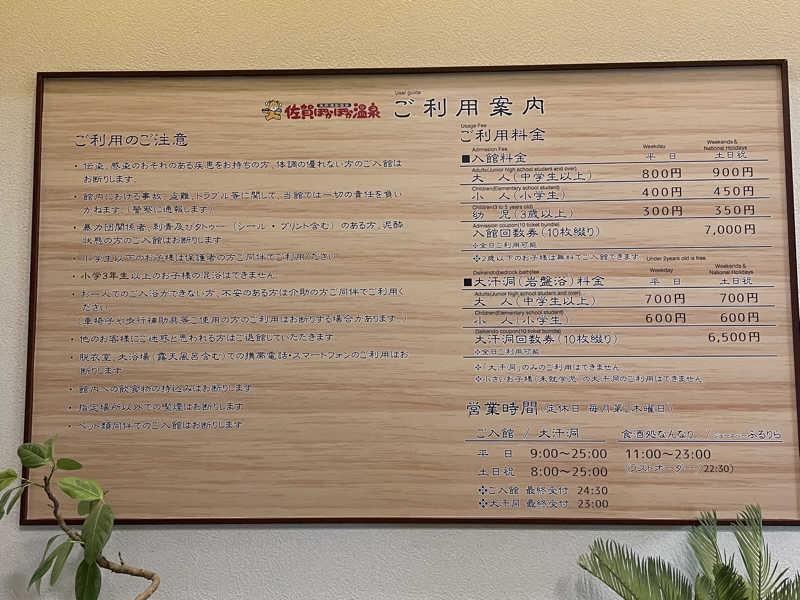 User guide
佐賀ぽかぽか温泉 ご利用案内
ご利用のご注意
・伝染、感染のおそれのある疾患をお持ちの方、体調の優れない方のご入館は
お断りします。
・館内における事故、盗難、トラブル等に関して、当館では一切の責任を負い
かねます。(警察に通報します)
・暴力団関係者、刺青及びタトゥー(シール・プリント含む)のある方、泥酔
状態の方のご入館はお断りします
・小学生以下のお子様は保護者の方ご同伴でご利用ください
・小学3年生以上のお子様の混浴はできません
・お一人でのご入浴ができない方、不安のある方は介助の方ご同伴でご利用く
ださい
(車椅子や歩行補助具等ご使用の方のご利用はお断りする場合があります。)
・他のお客様にご迷惑と思われる方はご退館していただきます
・脱衣室、大浴場(露天風呂含む)での携帯電話・スマートフォンのご利用はお
断りします
・館内への飲食物の持込みはお断りします
・指定場所以外での喫煙はお断りします
・ペット類同伴でのご入館はお断りします
Usage Fee
ご利用料金
Admission Fee Weekday Weekends & National Holidays
■入館料金 平 日 土日祝
Adults(Junior high school student and over)
大 人(中学生以上) 800円 900円
Children(Elementary school student)
小 人(小学生) 400円 450円
Children(3 to 5 years old)
幼 児(3歳以上) 300円 350円
Admission coupon(10 ticket bundle)
入館回数券(10枚綴り) 7,000円
※全日ご利用可能
※2歳以下のお子様は無料でご入館できます Under 2years old is free.
Daikando(bedrock bath)fee Weekday Weekends & National Holidays
■大汗洞(岩盤浴)料金 平 日 土日祝
Adults(Junior high school student and over)
大 人(中学生以上) 700円 700円
Children(Elementary school student)
小 人(小学生) 600円 600円
Daikando coupon(10 ticket bundle)
大汗洞回数券(10枚綴り) 6,500円
※全日ご利用可能
※「大汗洞」のみのご利用はできません
※小さいお子様(未就学児)の大汗洞のご利用はできません
営業時間(定休日 毎月第 木曜日)
ご入館 / 大汗洞 食酒処なんなり /
平 日 9:00〜25:00 11:00〜23:00
土日祝 8:00〜25:00 (ラストオーダー/22:30)
※ご入館 最終受付 24:30
※大汗洞 最終受付 23:00